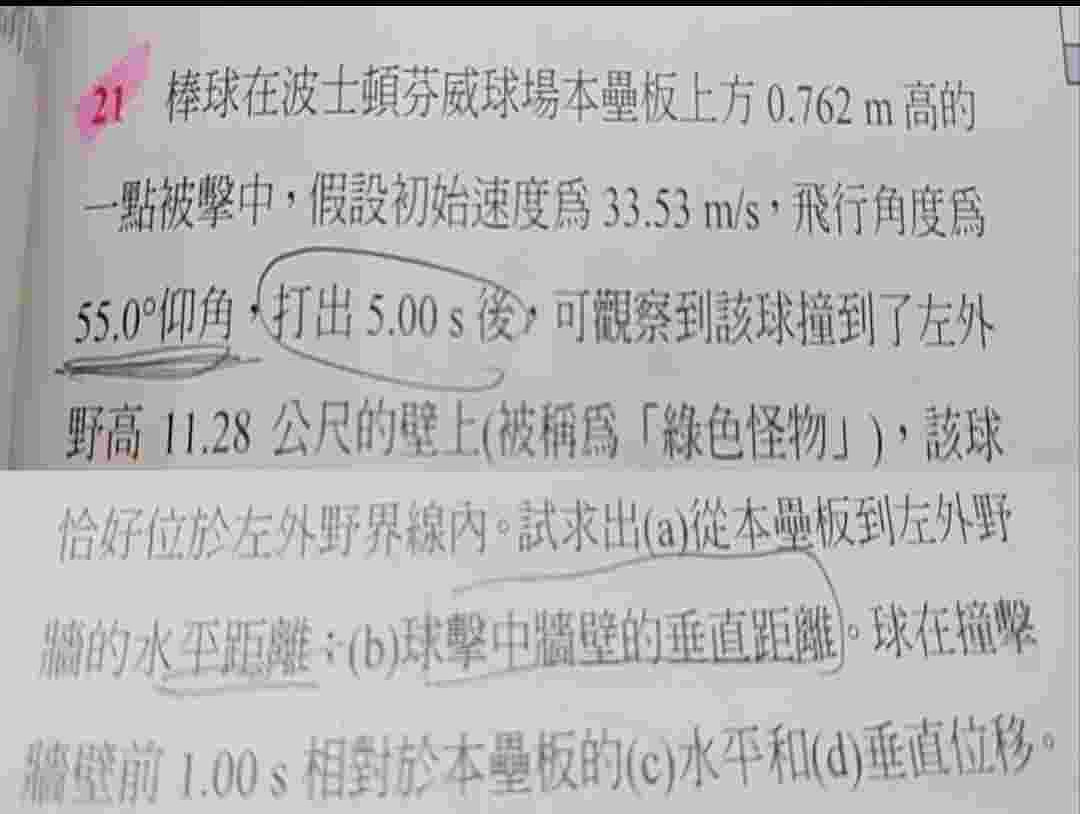 21 棒球在波士頓芬威球場本壘板上方 0.762 m 高的
一點被擊中，假設初始速度為 33.53 m/s，飛行角度為
55.0°仰角，打出 5.00 s 後，可觀察到該球撞到了左外
野高 11.28 公尺的壁上(被稱為「綠色怪物」)，該球
恰好位於左外野界線內。試求出(a)從本壘板到左外野
牆的水平距離；(b)球擊中牆壁的垂直距離。球在撞擊
牆壁前 1.00 s 相對於本壘板的(c)水平和(d)垂直位移。